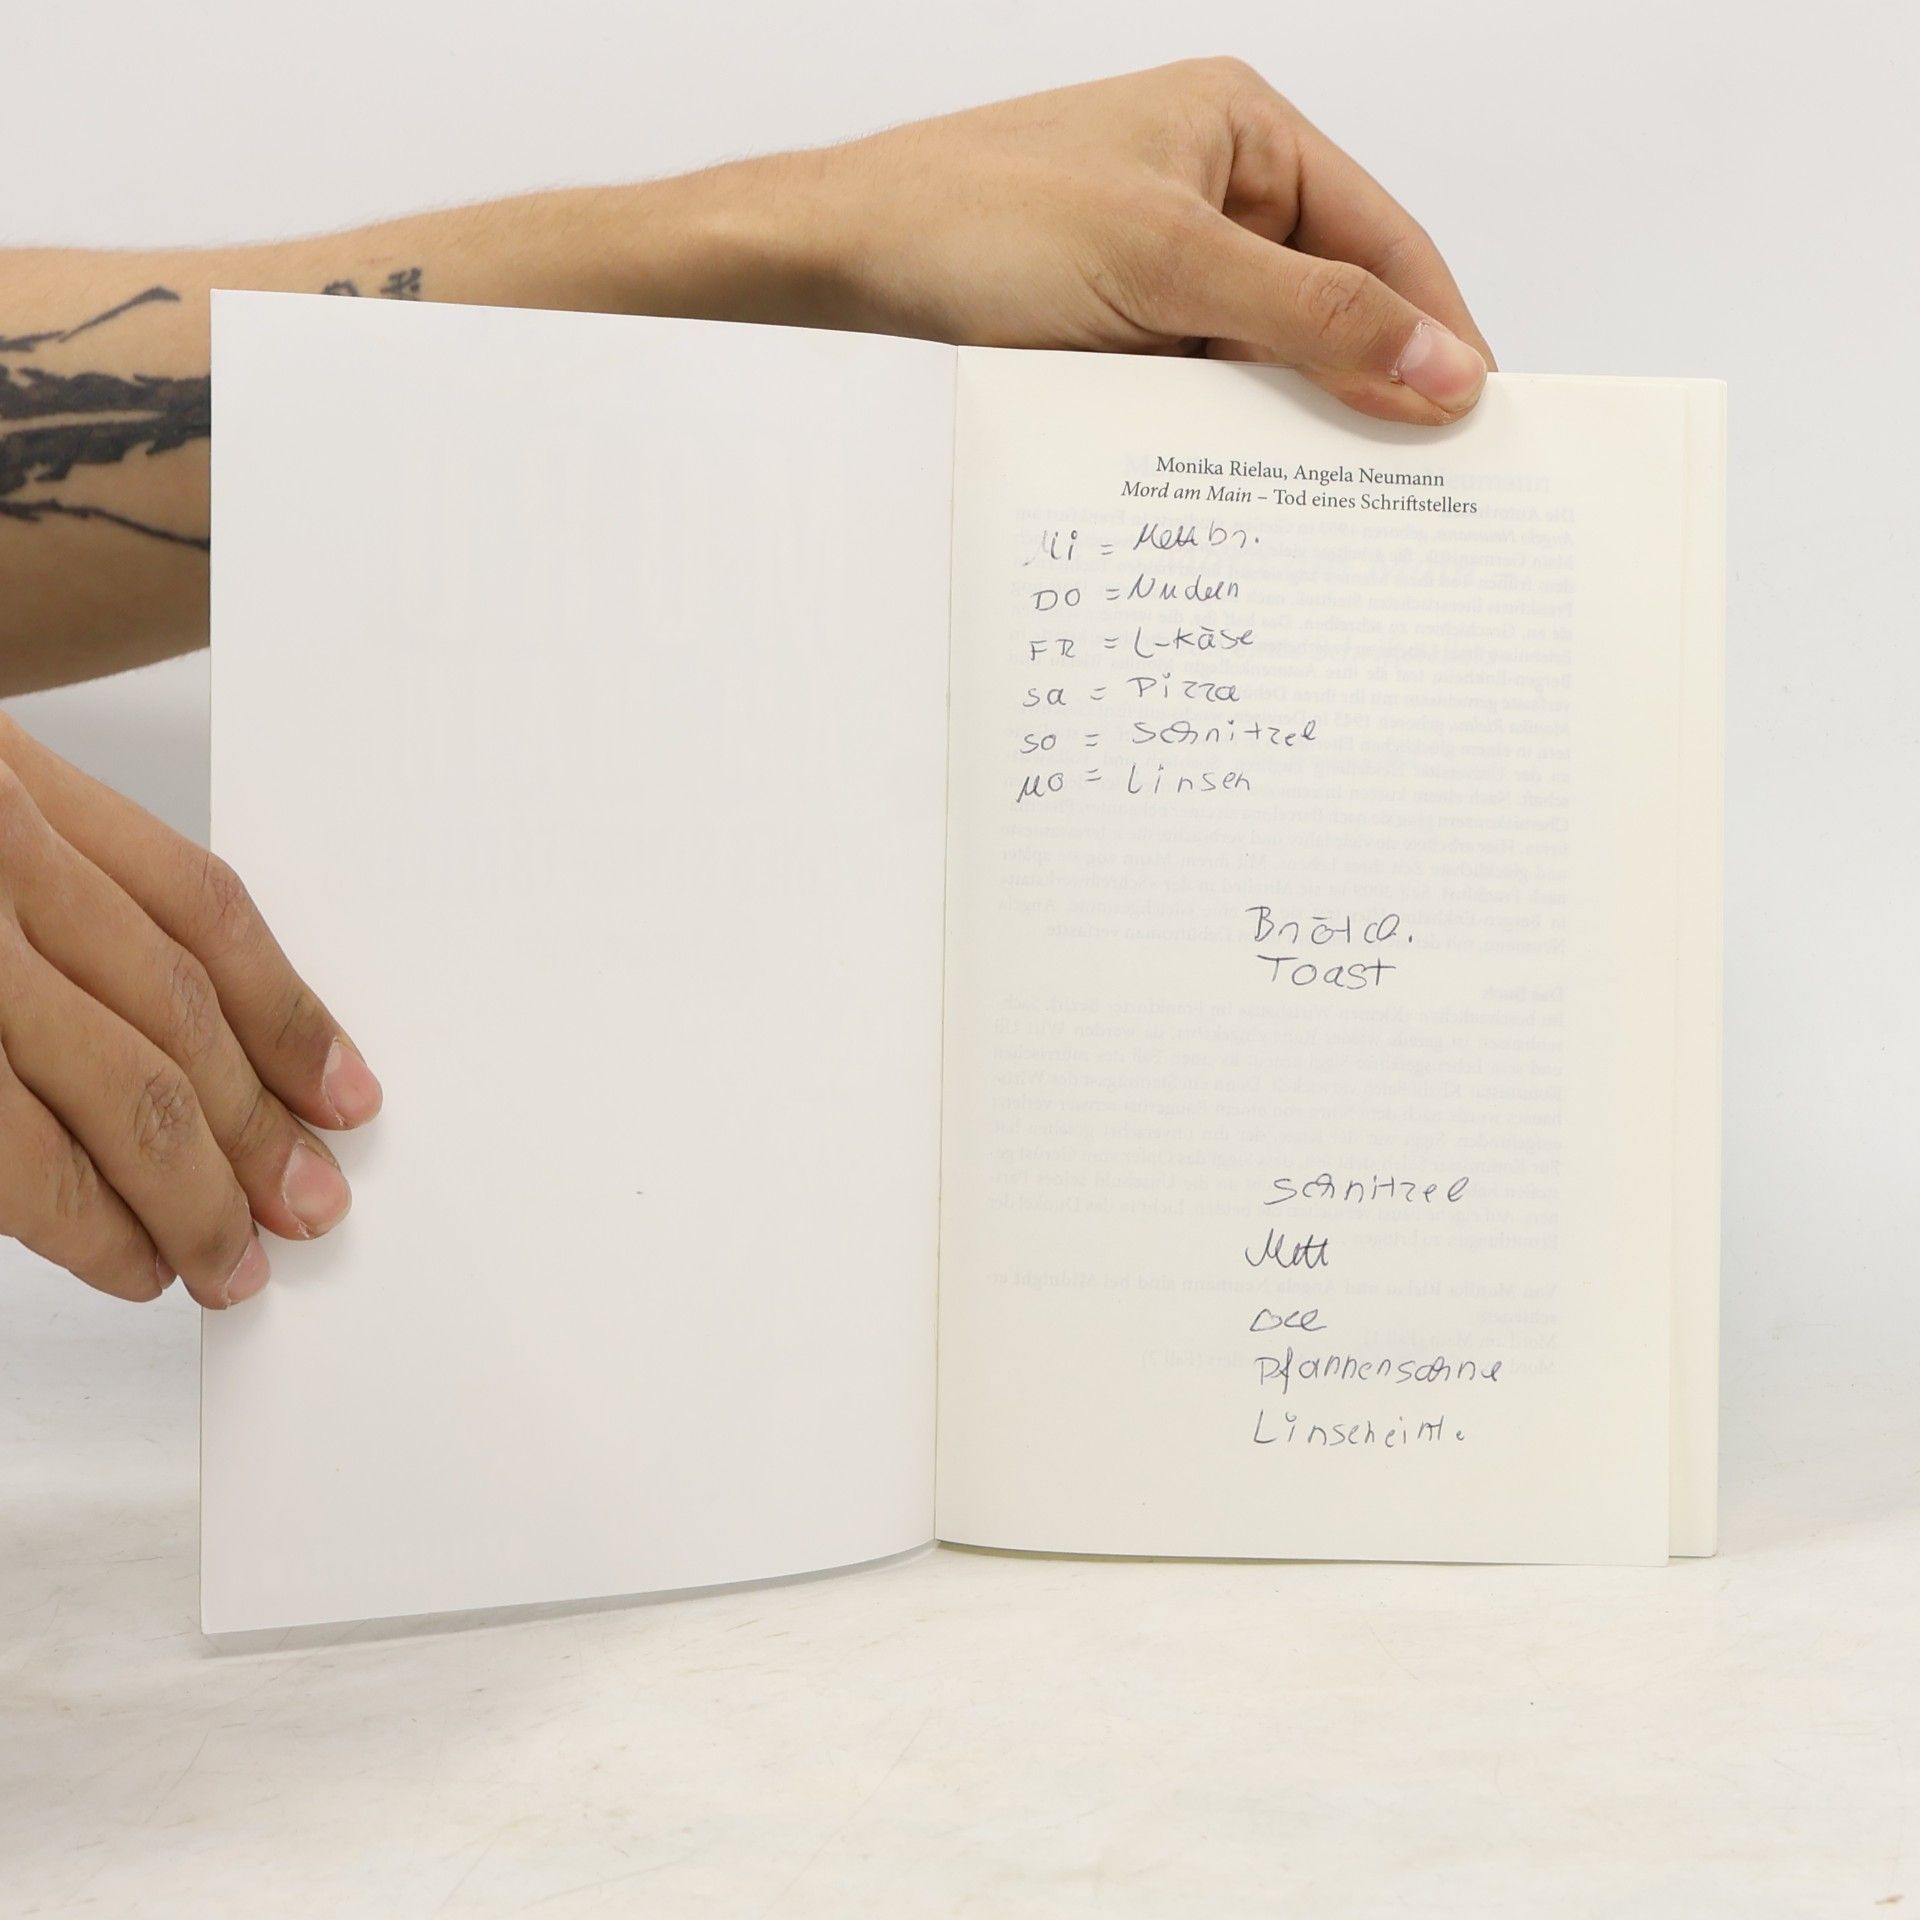 Monika Rielau, Angela Neumann
Mord am Main – Tod eines Schriftstellers
Mi = Mettbr.
DO = Nudeln
FR = L-Käse
Sa = Pizza
SO = Schnitzel
MO = Linsen
Brötch.
Toast
Schnitzel
Mett
Pfannensahne